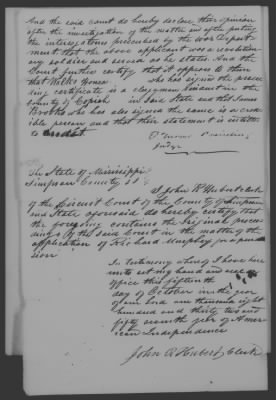 And the said court do hereby declare their opinion
after the investigation of the matter and after putting
the interogatories prescribed by the War Depart-
ment that the above applicant was a revolution-
ary soldier and served as he states. And the
Court further certify that it appears to them
that Wilks Homes who has signed the prece-
ding certificate is a clergyman resident in the
County of Copiah in said State and that James
Brooks who has also signed the same is a cred-
ible person and that their statement is entitled
to credit
Presiding
Judge
The State of Mississippi
Simpson County SS
I John R Hubert clerk
of the Circuit Court of the County of Simpson
and State aforesaid do hereby certify that
the foregoing contains the original procee-
dings of the said Court in the matter of the
application of Richard Murphey for a pen-
sion
In testimony whereof I have here
unto set my hand and seal of
office this fifteenth
day of October in the year
of our lord one thousand eight
hundred and thirty two and
fifty seventh year of Amer-
ican Independence
John R Hubert Clerk